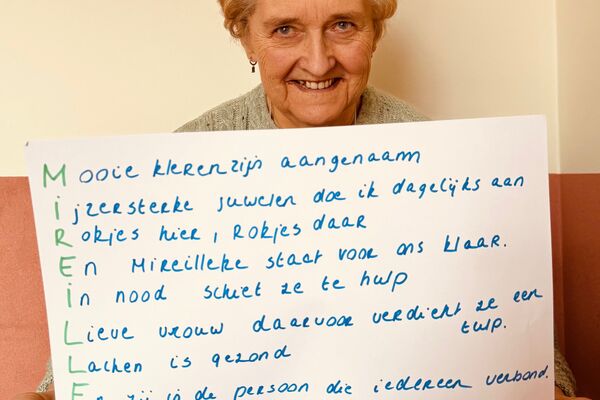 Mooie klerenzijn aangenaam
Ijzersterke juwelen doe ik dagelijks aan
Rokjes hier, Rokjes daar
En Mireilleke staat voor ons klaar.
In nood schiet ze te hulp
Lieve vrouw daarvoor verdient ze een
tulp.
Lachen is gezond
En zij is de persoon die iedereen verbond.